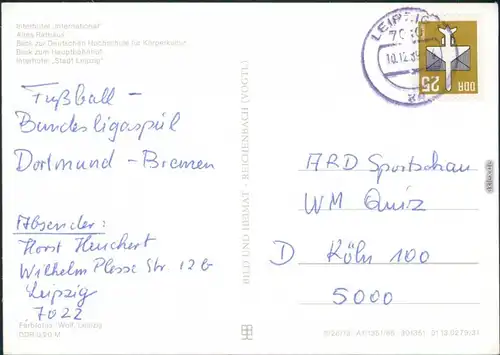 Interhotel „International"
Altes Rathaus
Blick zur Deutschen Hochschule für Körperkultur
Blick zum Hauptbahnhof
Interhotel „Stadt Leipzig"
Fußball -
Bundesligaspiel
Dortmund - Bremen
Absender:
Horst Heuchert
Wilhelm Plesse Str. 12b
Leipzig
7022
Farbfotos: Wolf, Leipzig
DDR 0,20 M
BILD UND HEIMAT · REICHENBACH (VOGTL)
LEIPZIG
10.12.89
25
DDR
ARD Sportschau
WM Quiz
D Köln 100
5000
01 13 0279/31